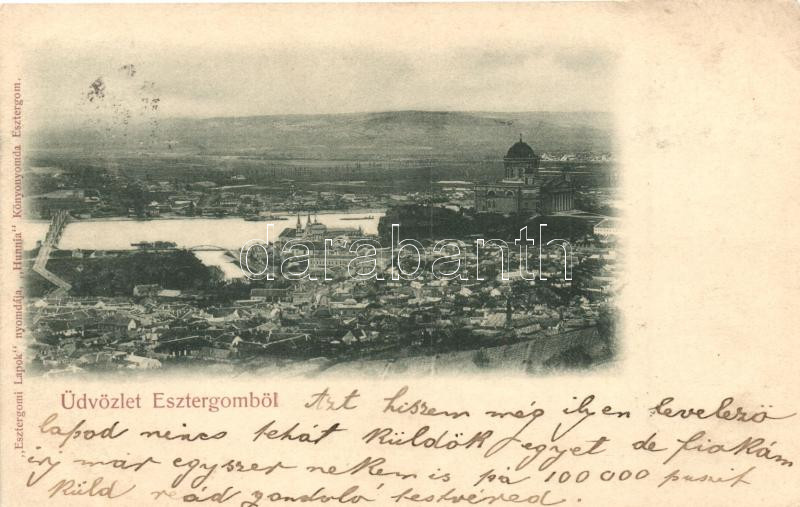 „Esztergomi Lapok" nyomdája, „Hunnia" Könyonyomda Esztergom.
darabanth
Üdvözlet Esztergomból
Azt hiszem még ilyen levelező
lapod nincs tehát Küldök egyet de fiakám
irj már egyszer nekem is pá 100 000 puszit
Küld reád gondoló testvéred.